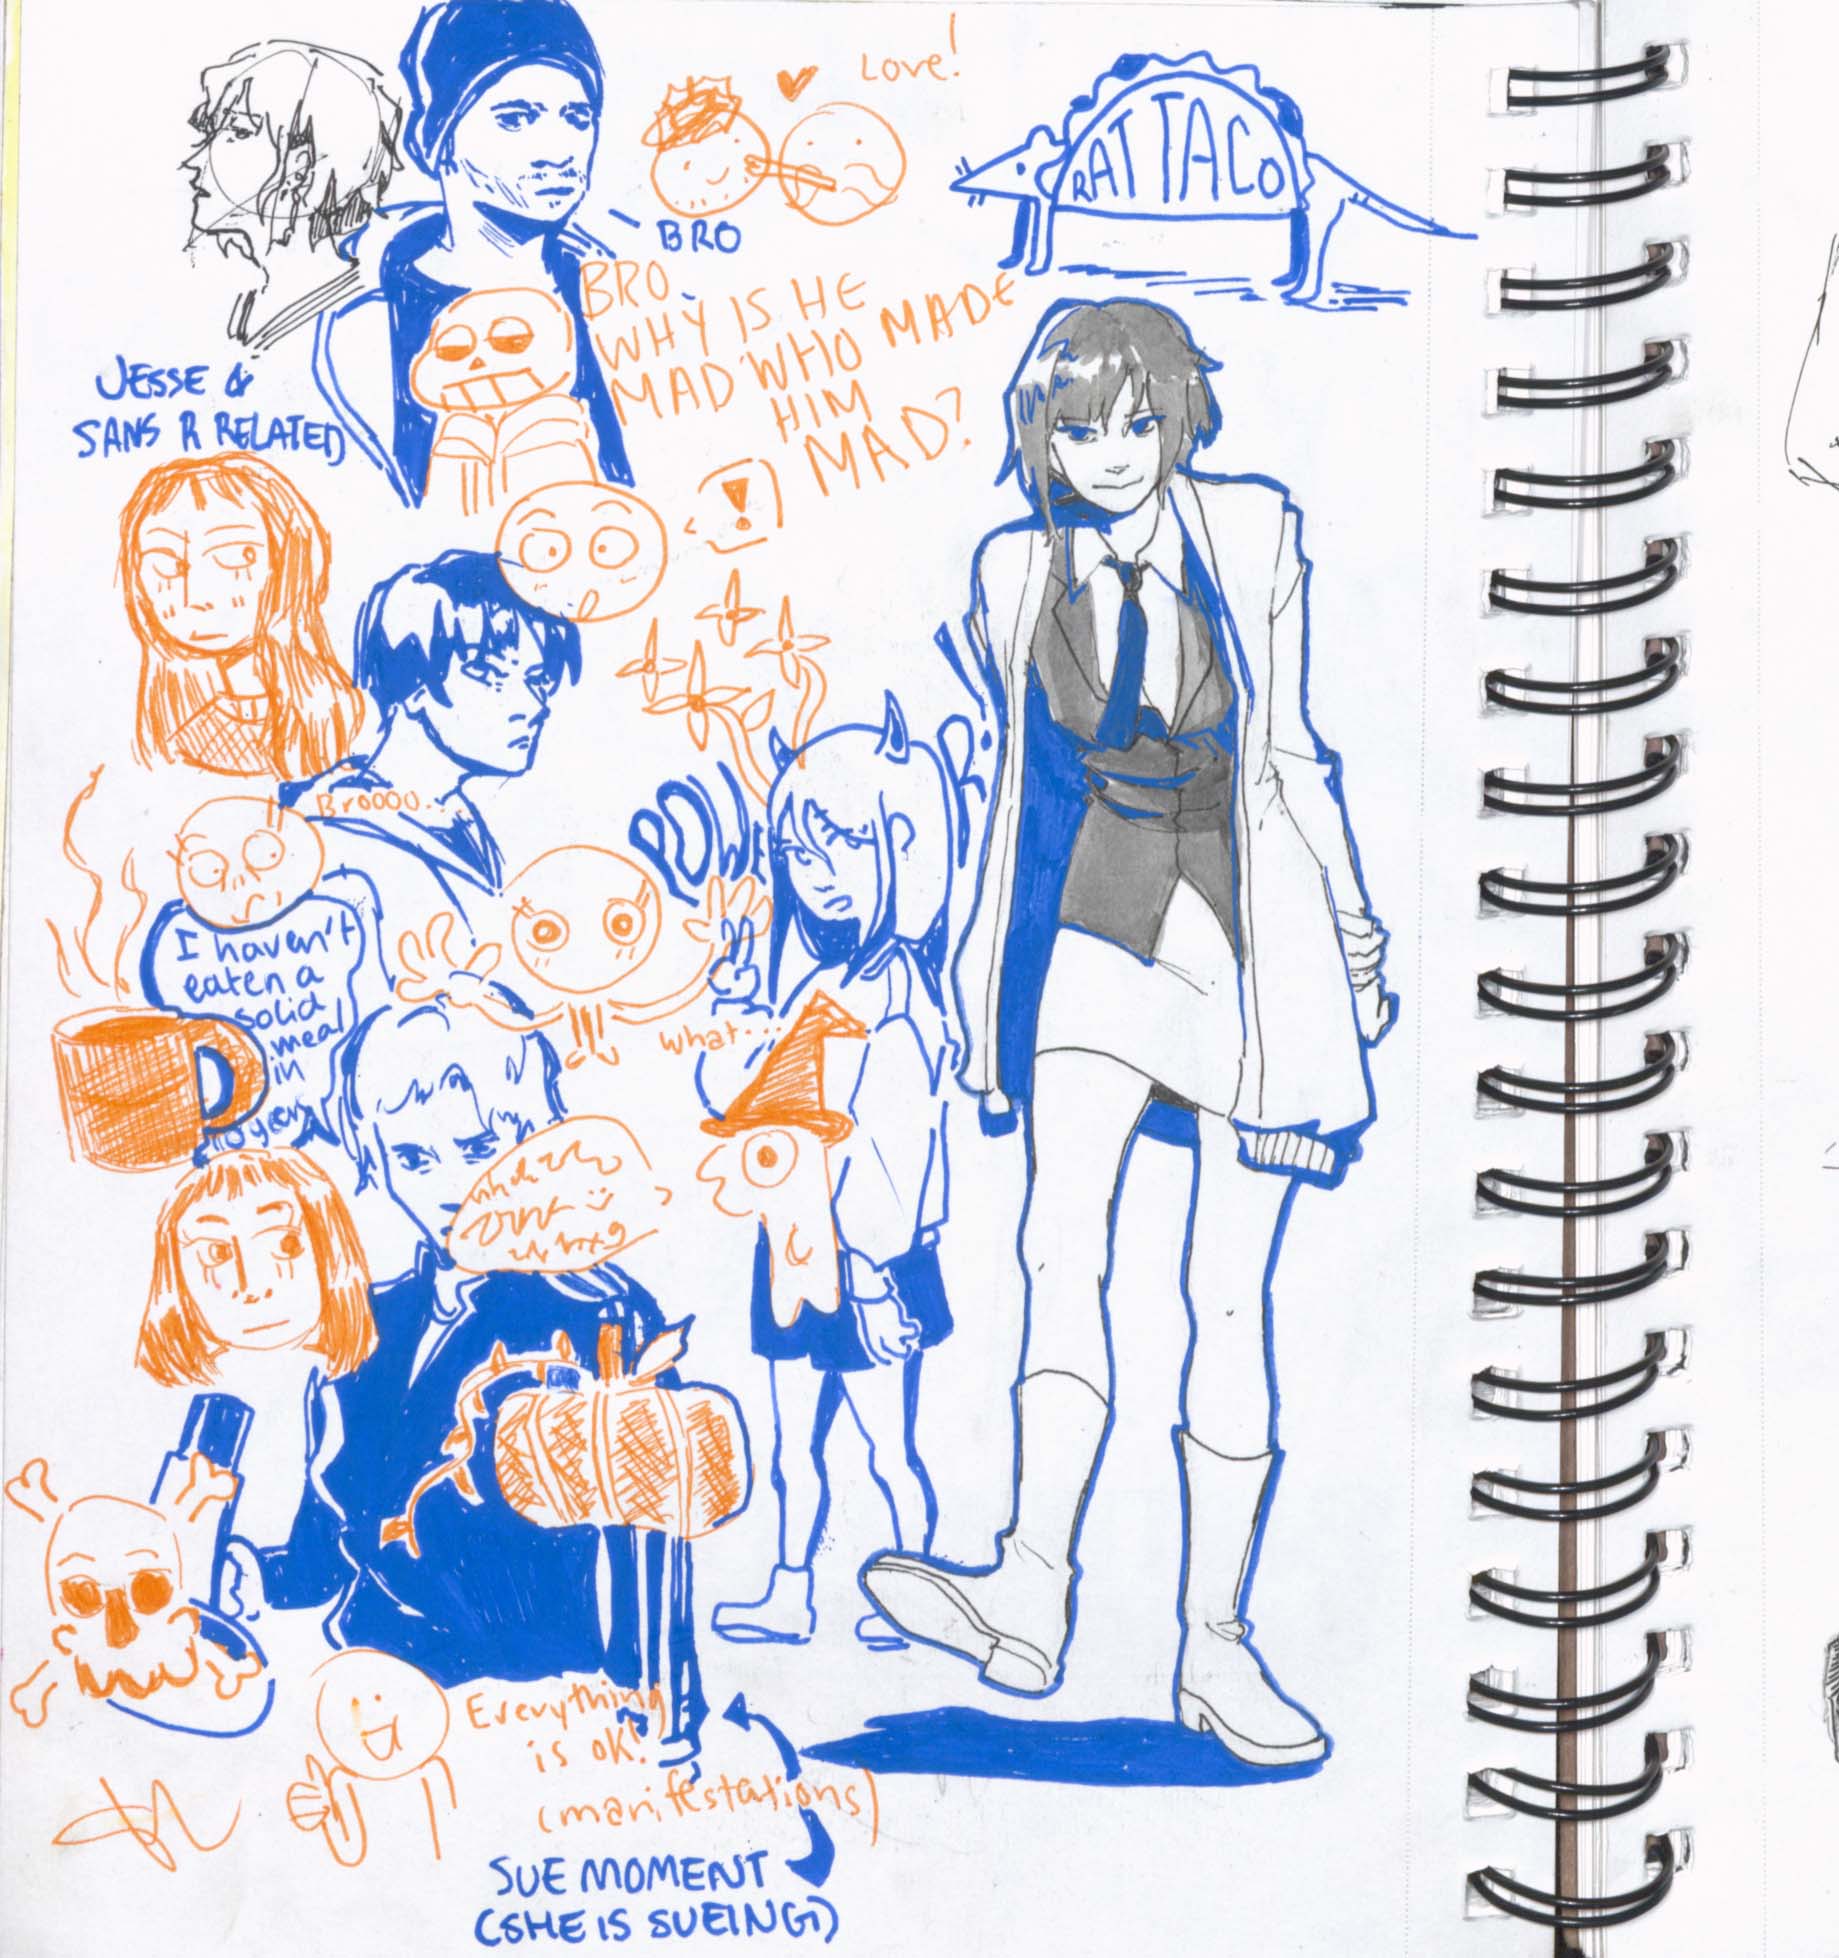 Love!
RAT TACO
BRO
BRO
WHY IS HE
MAD WHO MADE
HIM
MAD?
JESSE &
SANS R RELATED
!
Broooo..
POWER!
I haven't
eaten a
solid
meal
in
years
What...
Everything
is ok!
(manifestations)
SUE MOMENT
(SHE IS SUEING)